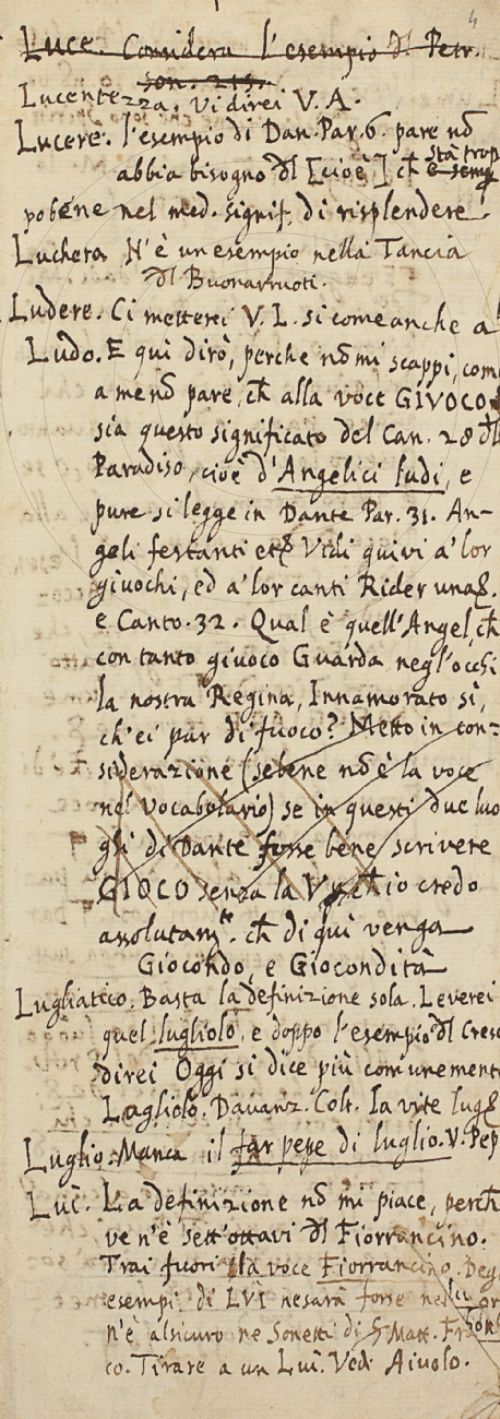 4
Luce. Considera l'esempio dl Petr.
son. 215.
Lucentezza. Vi direi V. A.
Lucere. l'esempio di Dan. Par. 6. pare nō
abbia bisogno dl [cioè] ch̄ è semp stà trop
pobene nel med. signif. di risplendere.
Luchera N'è un esempio nella Tancia
dl Buonarruoti.
Ludere. Ci metterei V. L. si come anche a
Ludo. E qui dirò, perche nō mi scappi, com
a me nō pare, ch̄ alla voce GIVOCO
sia questo significato del Can. 28 dl
Paradiso, cioè d'Angelici ludi, e
pure si legge in Dante Par. 31. An-
geli festanti etc Vidi quivi a' lor
giuochi, ed a' lor canti Rider una
e Canto. 32. Qual è quell'Angel, ch̄
con tanto giuoco Guarda negl'occhi
la nostra Regina, Innamorato sì,
ch'ei par di fuoco? Metto in con=
siderazione (sebene nō è la voce
nel Vocabolario) se in questi due luo
ghi di Dante fosse bene scrivere
GIOCO senza la V, ch̄ io credo
assolutamte. ch̄ di quì venga
Giocondo, e Giocondità
Lugliatico. Basta la definizione sola. Leverei
quel lugliolo, e doppo l'esempio dl Cresc
direi Oggi si dice più comunemente
Lugliolo. Davanz. Colt. la vite lug
Luglio. Manca il far pepe di luglio. V. Pep
Luì. La definizione nō mi piace, perch̄
ve n'è sett'ottavi dl Fiorrancino.
Trai fuori la voce Fiorrancino. Deg
esempi di LVI ne sarà forse nel
n'è alsicuro ne Sonetti di Matt. Fr
co. Tirare a un Luì. Vedi Aiuolo.